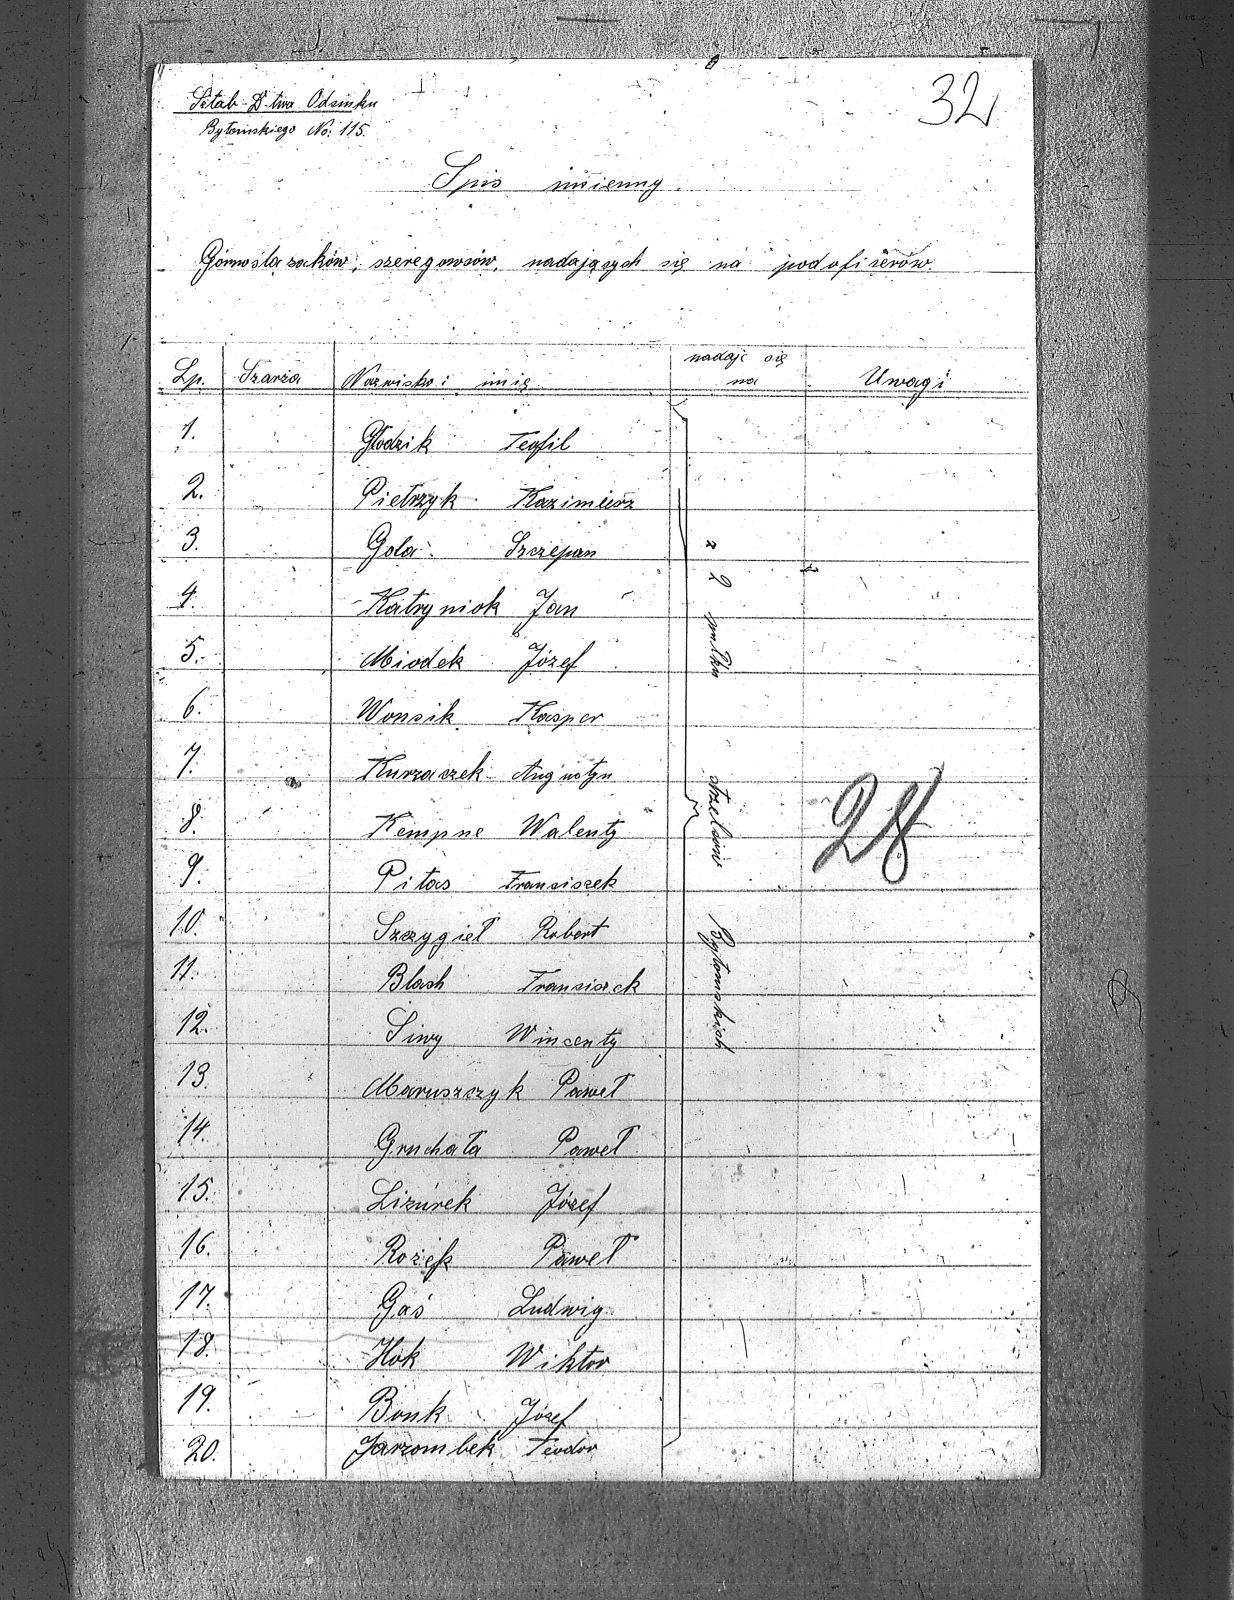 32
Sztab D-twa Odcinku
Bytomskiego No: 115.
Spis imienny
Górnoślązaków, szeregowców, nadających się na podoficerów.
Lp. Szarża Nazwisko i imię nadaje się na Uwagi
1. Głodzik Teofil
2. Pietrzyk Kazimierz
3. Gola Szczepan
4. Katryniok Jan
5. Miodek Józef
6. Wonsik Kasper
7. Kurzaczek Augustyn
8. Kempne Walenty
9. Pitas Franciszek
10. Szczygieł Robert
11. Blach Franciszek
12. Siwy Wincenty
13. Maruszczyk Paweł
14. Gruchała Paweł
15. Lizurek Józef
16. Rożek Paweł
17. Gaś Ludwig
18. Hok Wiktor
19. Bonk Józef
20. Jarzombek Teodor
z 2 pułku strzelców Bytomskich
28